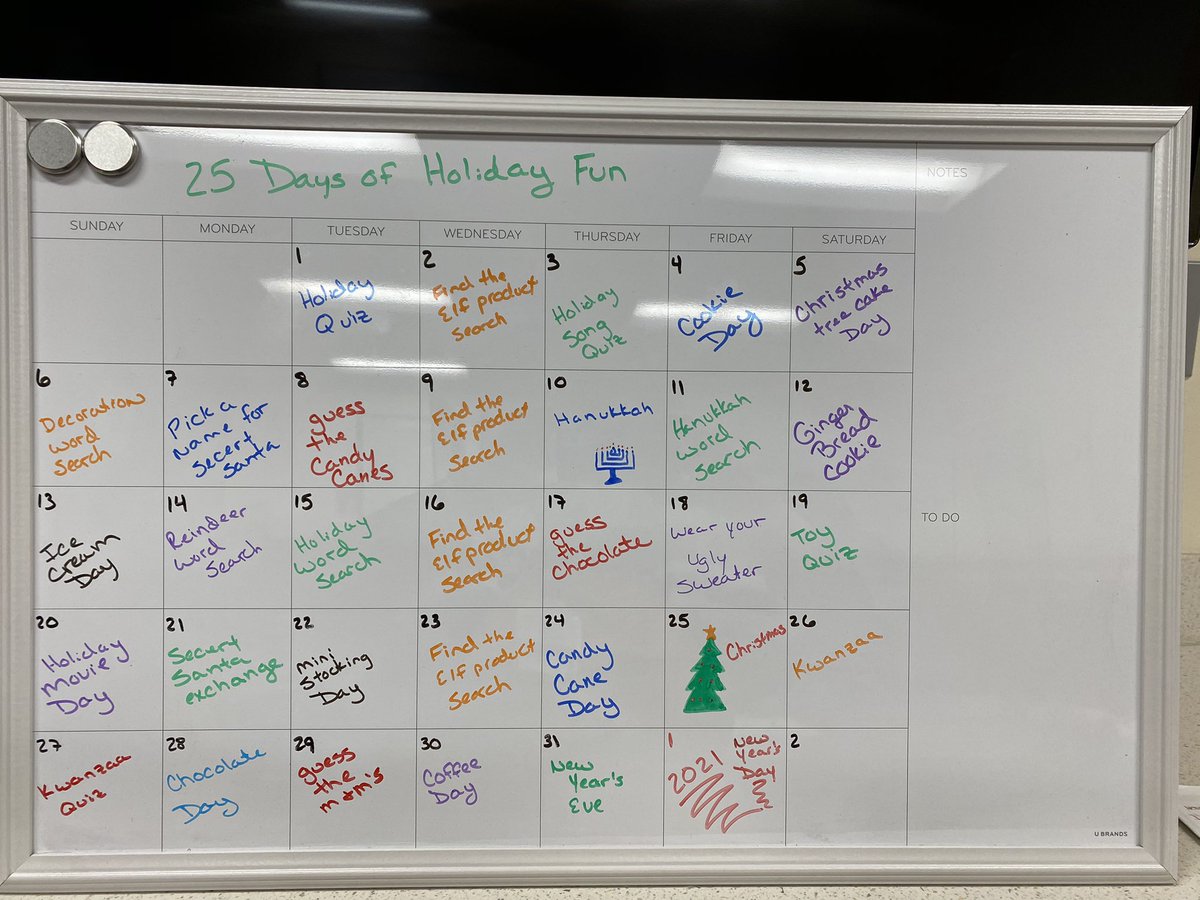 25 Days of Holiday Fun
NOTES
SUNDAY
MONDAY
TUESDAY
WEDNESDAY
THURSDAY
FRIDAY
SATURDAY
1
Holiday
Quiz
2
Find the
Elf product
search
3
Holiday
Song
Quiz
4
Cookie
Day
5
Christmas
tree cake
Day
6
Decorations
word
search
7
Pick a
name for
secert
santa
8
guess
the
Candy
Canes
9
Find the
Elf product
search
10
Hanukkah
11
Hanukkah
word
search
12
Ginger
Bread
cookie
13
Ice
cream
Day
14
Reindeer
word
search
15
Holiday
word
search
16
Find the
Elf product
search
17
guess
the
chocolate
18
wear your
ugly
sweater
19
Toy
Quiz
TO DO
20
Holiday
movie
Day
21
Secert
Santa
exchange
22
mini
Stocking
Day
23
Find the
Elf product
search
24
Candy
Cane
Day
25
Christmas
26
Kwanzaa
27
Kwanzaa
Quiz
28
Chocolate
Day
29
guess
the
m+m's
30
Coffee
Day
31
New
Year's
Eve
1
2021
New
Year's
Day
2
U BRANDS